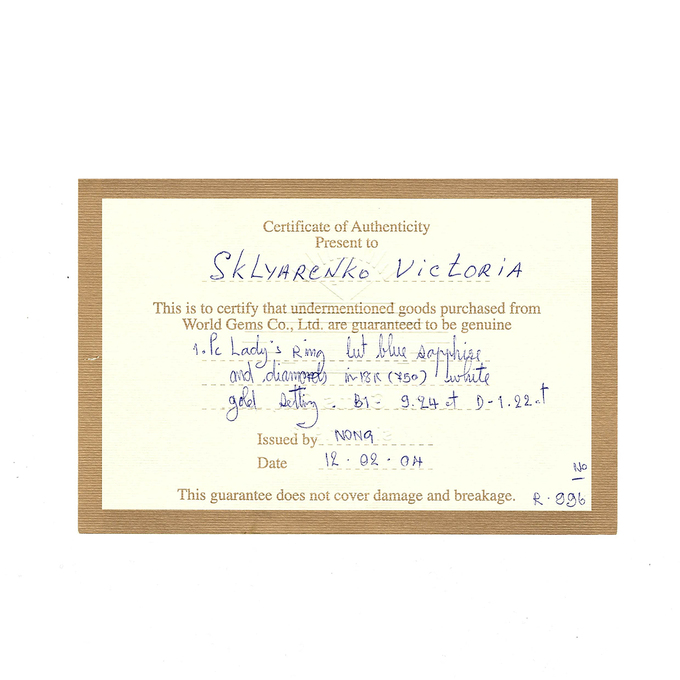 Certificate of Authenticity
Present to
Sklyarenko Victoria
This is to certify that undermentioned goods purchased from
World Gems Co., Ltd. are guaranteed to be genuine
1. Pc Lady's Ring lut blue sapphire
and diamonds in 18K (750) white
gold setting. B1 - 9.24 ct D - 1.22 ct
Issued by NONG
Date 12.02.04
No
This guarantee does not cover damage and breakage. R. 996